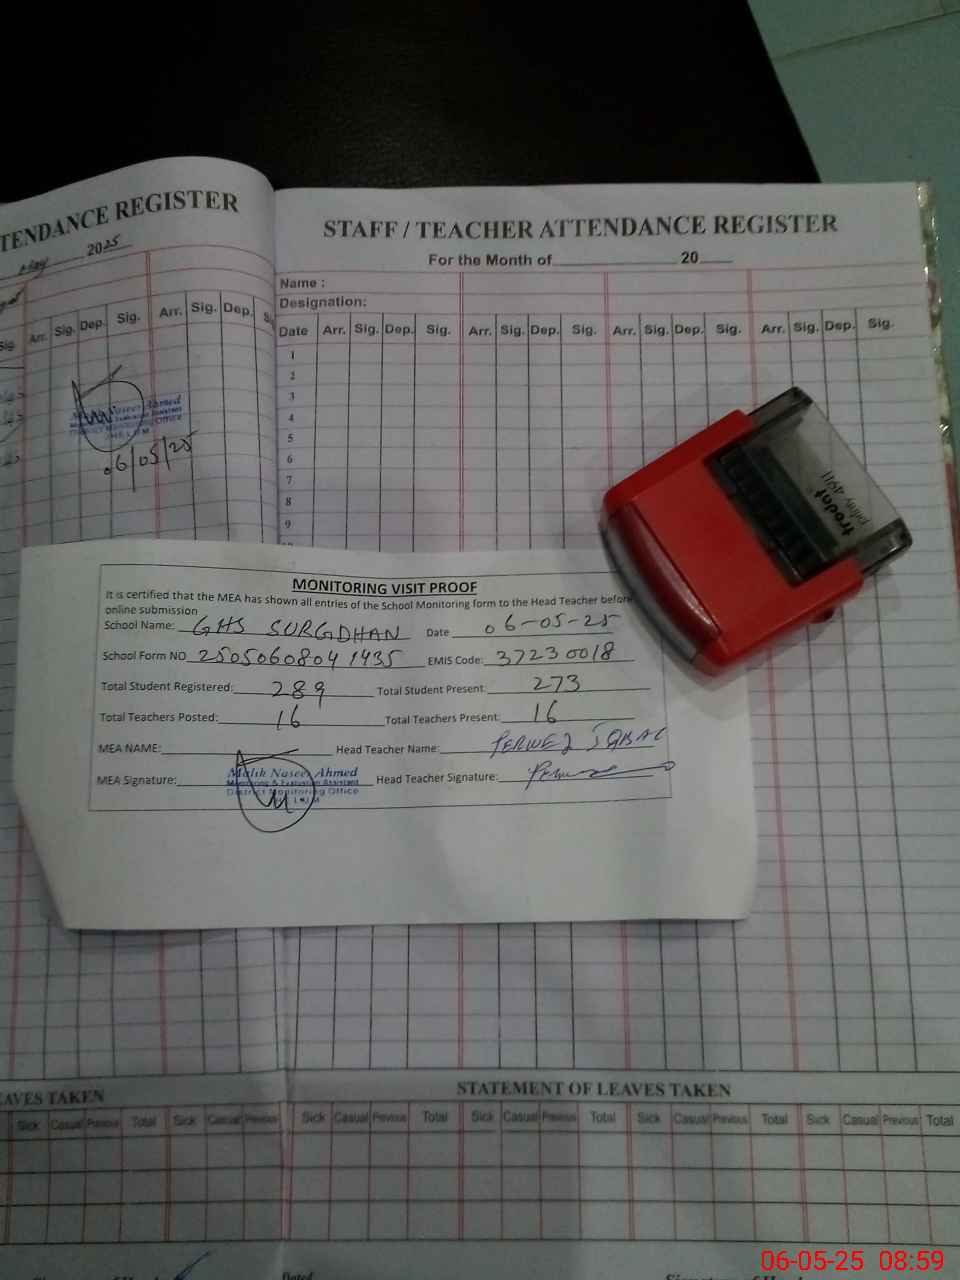 TENDANCE REGISTER
May 2025
Sig. Arr. Sig. Dep. Sig. Arr. Sig. Dep.
Naseer Ahmed
District Monitoring Office
06/05/25
STAFF / TEACHER ATTENDANCE REGISTER
For the Month of 20
Name :
Designation:
Date Arr. Sig. Dep. Sig. Arr. Sig. Dep. Sig. Arr. Sig. Dep. Sig. Arr. Sig. Dep. Sig.
1
2
3
4
5
6
7
8
9
trodat
printy 4911
MONITORING VISIT PROOF
It is certified that the MEA has shown all entries of the School Monitoring form to the Head Teacher before
online submission
School Name: GHS SURGDHAN Date 06-05-25
School Form NO 25050608041435 EMIS Code: 37230018
Total Student Registered: 289 Total Student Present: 273
Total Teachers Posted: 16 Total Teachers Present: 16
MEA NAME: Head Teacher Name: PERWEZ IQBAL
MEA Signature: Head Teacher Signature:
Malik Naseer Ahmed
Monitoring & Evaluation Assistant
District Monitoring Office
AVES TAKEN
Sick Casual Previous Total Sick Casual Previous
STATEMENT OF LEAVES TAKEN
Sick Casual Previous Total Sick Casual Previous Total Sick Casual Previous Total Sick Casual Previous Total
Dated
06-05-25 08:59